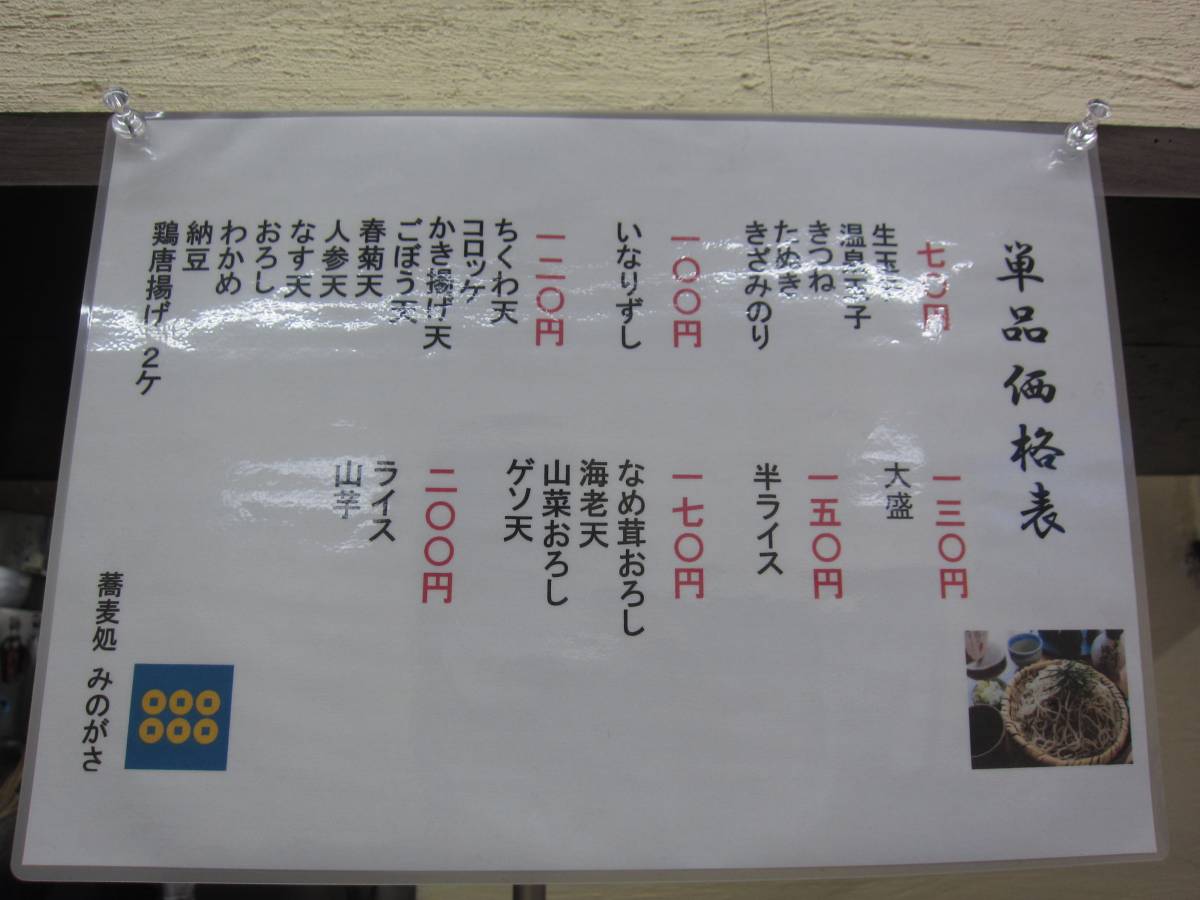 単品価格表
七〇円
生玉子
温泉玉子
きつね
たぬき
きざみのり
一〇〇円
いなりずし
一二〇円
ちくわ天
コロッケ
かき揚げ天
ごぼう天
春菊天
人参天
なす天
おろし
わかめ
納豆
鶏唐揚げ 2ケ
一三〇円
大盛
一五〇円
半ライス
一七〇円
なめ茸おろし
海老天
山菜おろし
ゲソ天
二〇〇円
ライス
山芋
蕎麦処 みのがさ